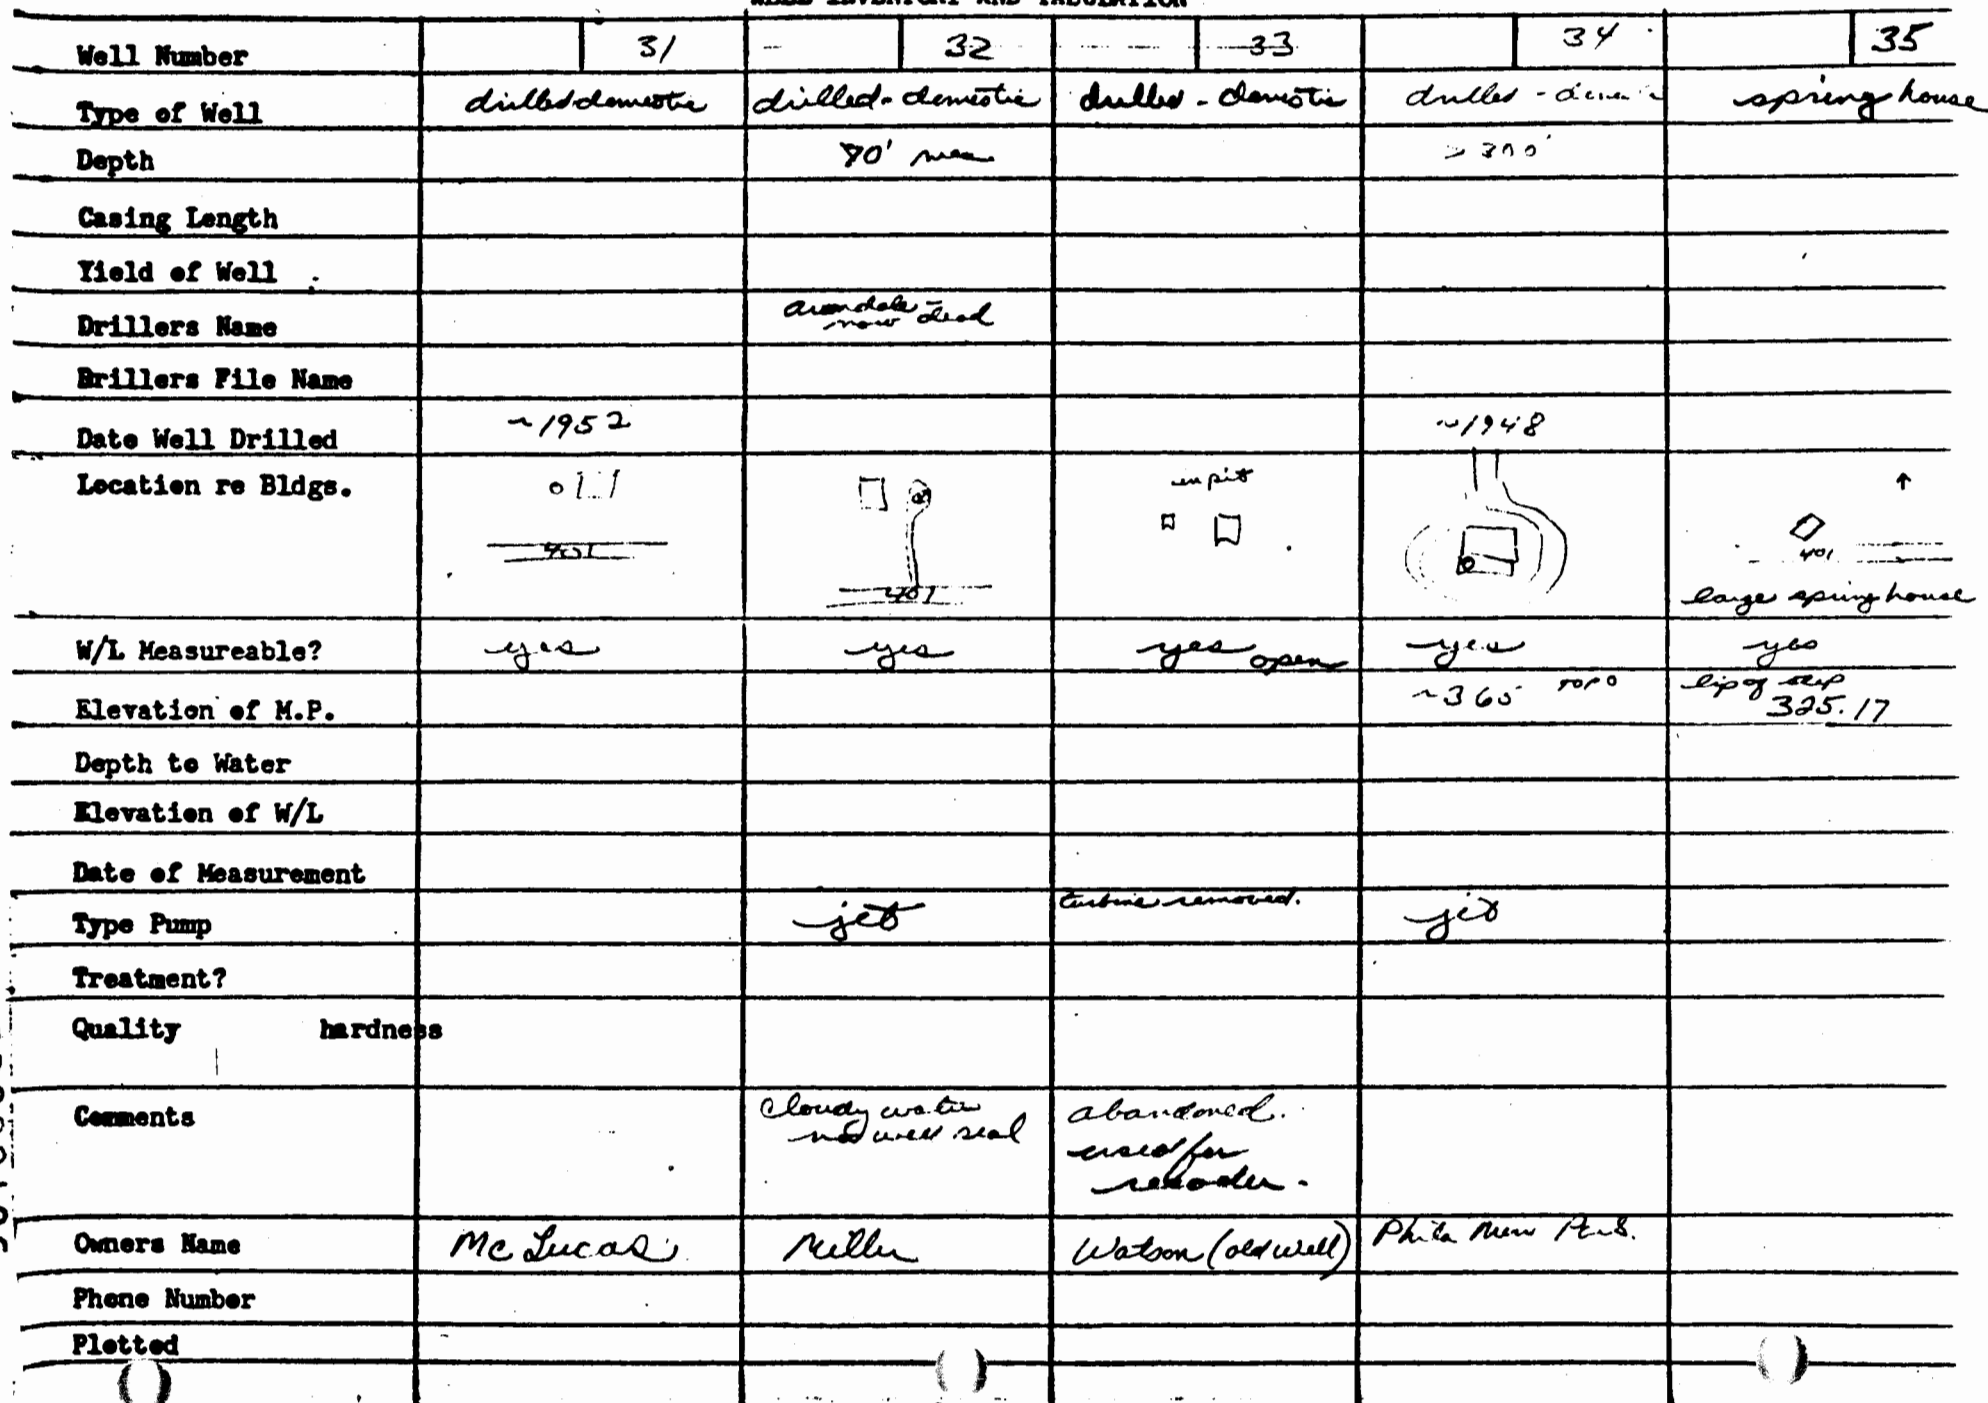 WELL INVENTORY AND TABULATION
Well Number 31 32 33 34 35
Type of Well drilled domestic drilled - domestic drilled - domestic drilled - spring house
Depth 90' > 300'
Casing Length
Yield of Well
Drillers Name avondale - now dead
Brillers File Name
Date Well Drilled ~1952 ~1948
Location re Bldgs. in pit
401 401 401
large spring house
W/L Measureable? yes yes yes open yes yes
Elevation of M.P. ~365 TOPO lip of step 325.17
Depth to Water
Elevation of W/L
Date of Measurement
Type Pump jet turbine removed. jet
Treatment?
Quality hardness
Comments cloudy water abandoned.
no well seal used for
recorder.
Owners Name McLucas Miller Watson (old well) Phila
Phone Number
Plotted